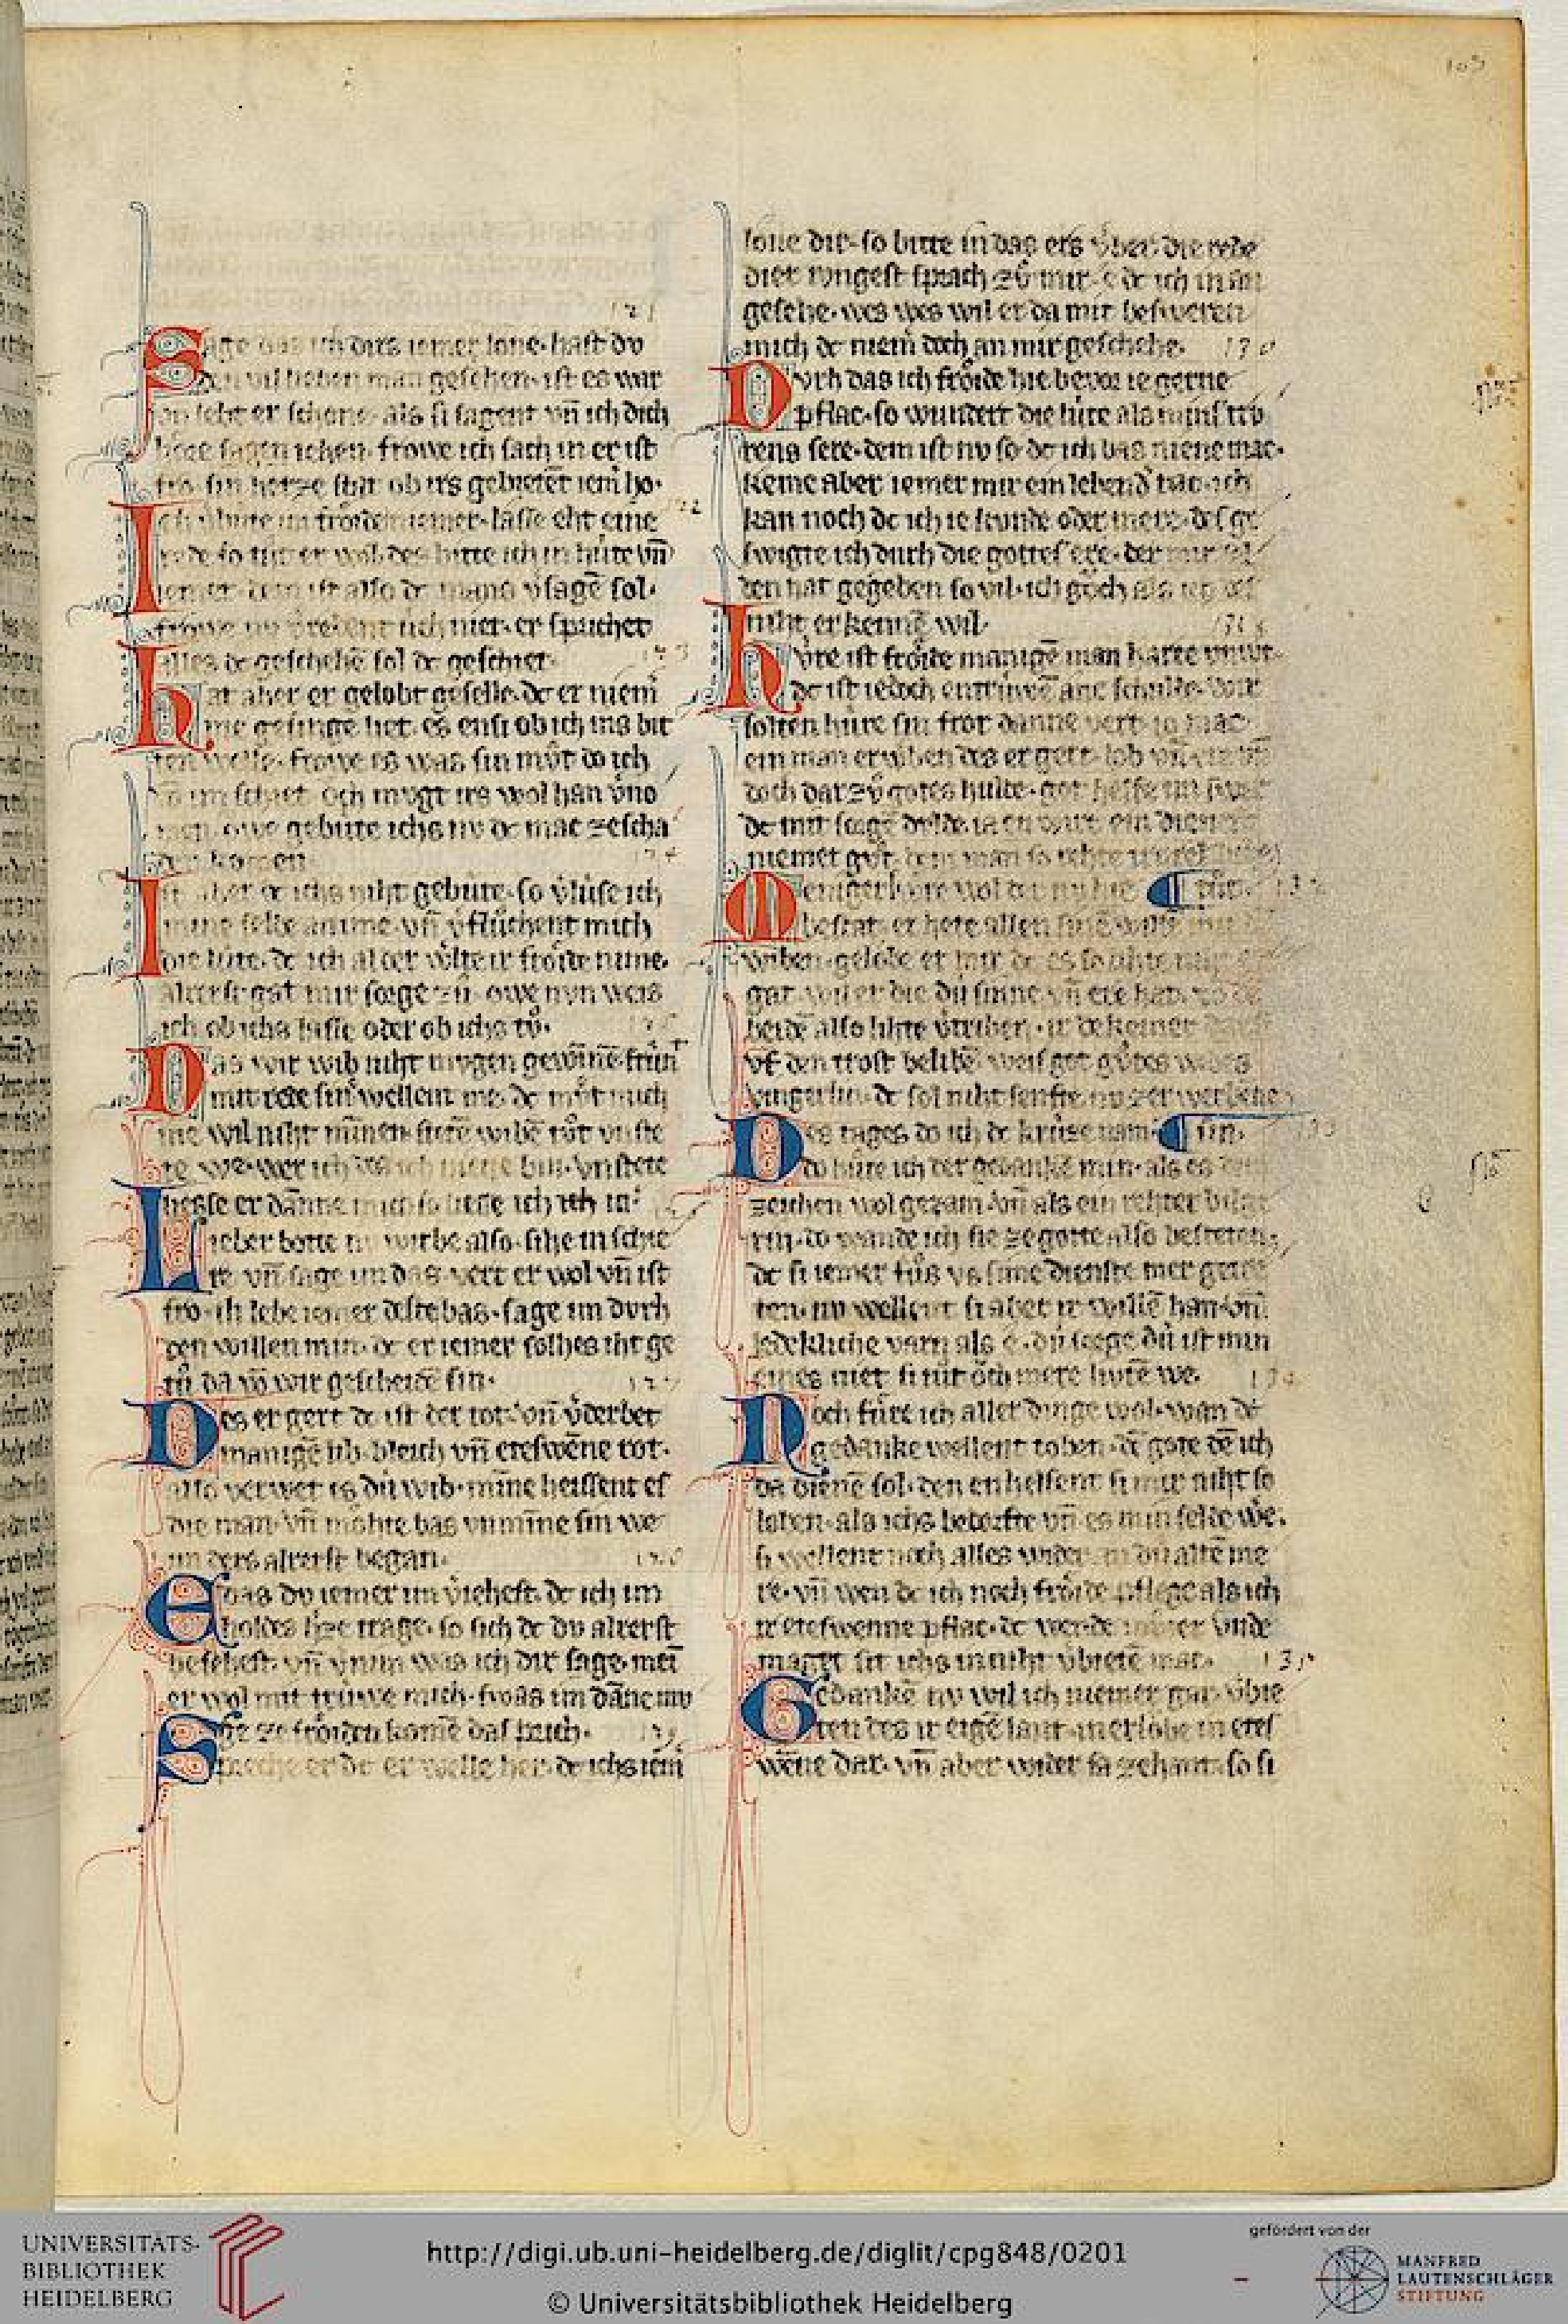 105
Sage das ich dirs iemer lone. hast dv
den vil lieben man gesehen. ist es war
vn̄ lebt er schone als si sagent vn̄ ich dich
höre sagen iehen. frowe ich sach in er ist
fro. sin herze stat ob irs gebietēt iem̄ ho.
Ich v̓bute im fröide niemer. lasse eht eine
rede so tůt er wol des bitte ich in hüte vn̄
iemer. dem ist also dc mans v̓sagē sol.
frowe nv v̓redent üch niet. er sprichet
alles dc geschehē sol dc geschiet.
Hat aber er gelobt geselle. dc er niem̄
me gesinge liet. es ensi ob ich ins bit
ten welle. frowe es was sin můt do ich
von im schiet. och mvgt irs wol han v̓no
men. owe gebüte ichs nv dc mac zescha
den komen
Ist aber dc ichs niht gebüte. so v̓lüse ich
mine selde an ime. vn̄ v̓flůchent mich
die lüte. dc ich al der welte ir fröide nime.
alrerst gat mir sorge zů. owe nvn weis
ich ob ichs lasse oder ob ichs tů.
Das wir wib niht mvgen gewinnē frün
mit rede sin wellent me. dc můt mich
ine wil niht minnen. stetē wibē tůt vnste
te we. wer ich des ich niene bin. vnstete
liesse er danne mich so liesse ich in.
Lieber botte nv wirbe also. sihe in schie
re vn̄ sage im das. vert er wol vn̄ ist
fro. ih lebe iemer deste bas. sage im dvrh
den willen min. dc er iemer solhes iht ge
tů da vō wir gescheidē sin.
Des er gert dc ist der tot. vn̄ v̓derbet
manigē lib. bleich vn̄ eteswēne rot.
also verwet es dü wib. mīne heissent es
die man. vn̄ möhte bas vnmīne sin we
im ders alrerst began.
E das dv iemer im v̓iehest. dc ich im
holdes h̓ze trage. so sich dc dv alrerst
besehest. vn̄ v̓nim was ich dir sage. mei
er wol mit trüwe mich. swas im dāne mv
ge ze fröiden komē das sprich.
Spreche er dc er welle her. dc ichs iem̄
lone dir. so bitte in das ers v̓ber die rede
diet ivngest sprach zů mir. e dc ich in an
gesehe. wes wes wil er da mit besweren
mich dc niem̄ doch an mir geschehe. 130
Dvrh das ich fröide hie bevor ie gerne
pflac. so wundert die lüte als mins tro
rens sere. dem ist nv so dc ich bas niene mac.
keme aber iemer mir ein lebend̓ tac. ich
kan noch dc ich ie kvnde oder mere. des ge
swigte ich durch die gottes ere. der mir sel
den hat gegeben so vil. ich
niht erkennē wil.
Hvre ist fröide manigē man harte vnwt.
dc ist iedoch entrüwē ane schulde.
solten hüre sin fror danne vert. io mac
ein man erwben des er gert. lob vn̄
doch dar zv̓ gotes hulde. got helfe im swer
dc mit sorge dvlde.
niemet gůt. dem man so rehte
bestat. er hete allen sinē willē mit
wiben. gelobe er mir dc es so
gat. wil er die dü sinne vn̄ ere hat.
beide also lihte v̓triben. ir dekeiner
vf den trost belibē. weis got gůtes wibes
vingerlin. dc sol niht senfte nv zerwerbene
Des tages do ich dc krüze nam. sin.
do hůte ich der gedanke min. als es dem
zeichen wol gezam. vn̄ als ein rehter bilge
rin. do wande ich sie ze gotte also bestetens,
dc si iemer fůs vs sime dienste mer getre
ten. nv wellent si aber ir willē han. vn̄
ledekliche varn als e. dü sorge dü ist min
eines niet si tůt öch mere lvtē we. 134
Noch füre ich aller dinge wol. wan dc
gedanke wellent toben. dē gote dē ich
da dienē sol. den enhelfent si mir niht so
loben. als ichs bedorfte vn̄ es min selde we.
si wellent noch alles wider an dü altē me
re. vn̄ wen dc ich noch fröide pflege als ich
ir eteswenne pflac. dc wende mv̓ter vnde
maget sit ichs in niht v̓bietē mac. 135
Gedankē nv wil ich niemer gar. v̓bie
ten des ir eigē lant. in erlöbe in etes
wēne dar. vn̄ aber wider sa zehant. so si
UNIVERSITÄTS-
BIBLIOTHEK
HEIDELBERG
http://digi.ub.uni-heidelberg.de/diglit/cpg848/0201
© Universitätsbibliothek Heidelberg
gefördert von der
MANFRED
LAUTENSCHLÄGER
STIFTUNG